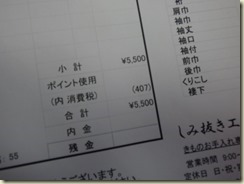 小計 ¥5,500
ポイント使用
(内 消費税) (407)
合計 ¥5,500
内金
残金
: 55
肩巾
袖巾
袖丈
袖口
袖付
前巾
後巾
くりこし
褄下
しみ抜き工
きものお手入れ
営業時間 9:00-
定休日 日・祝・
ございます。